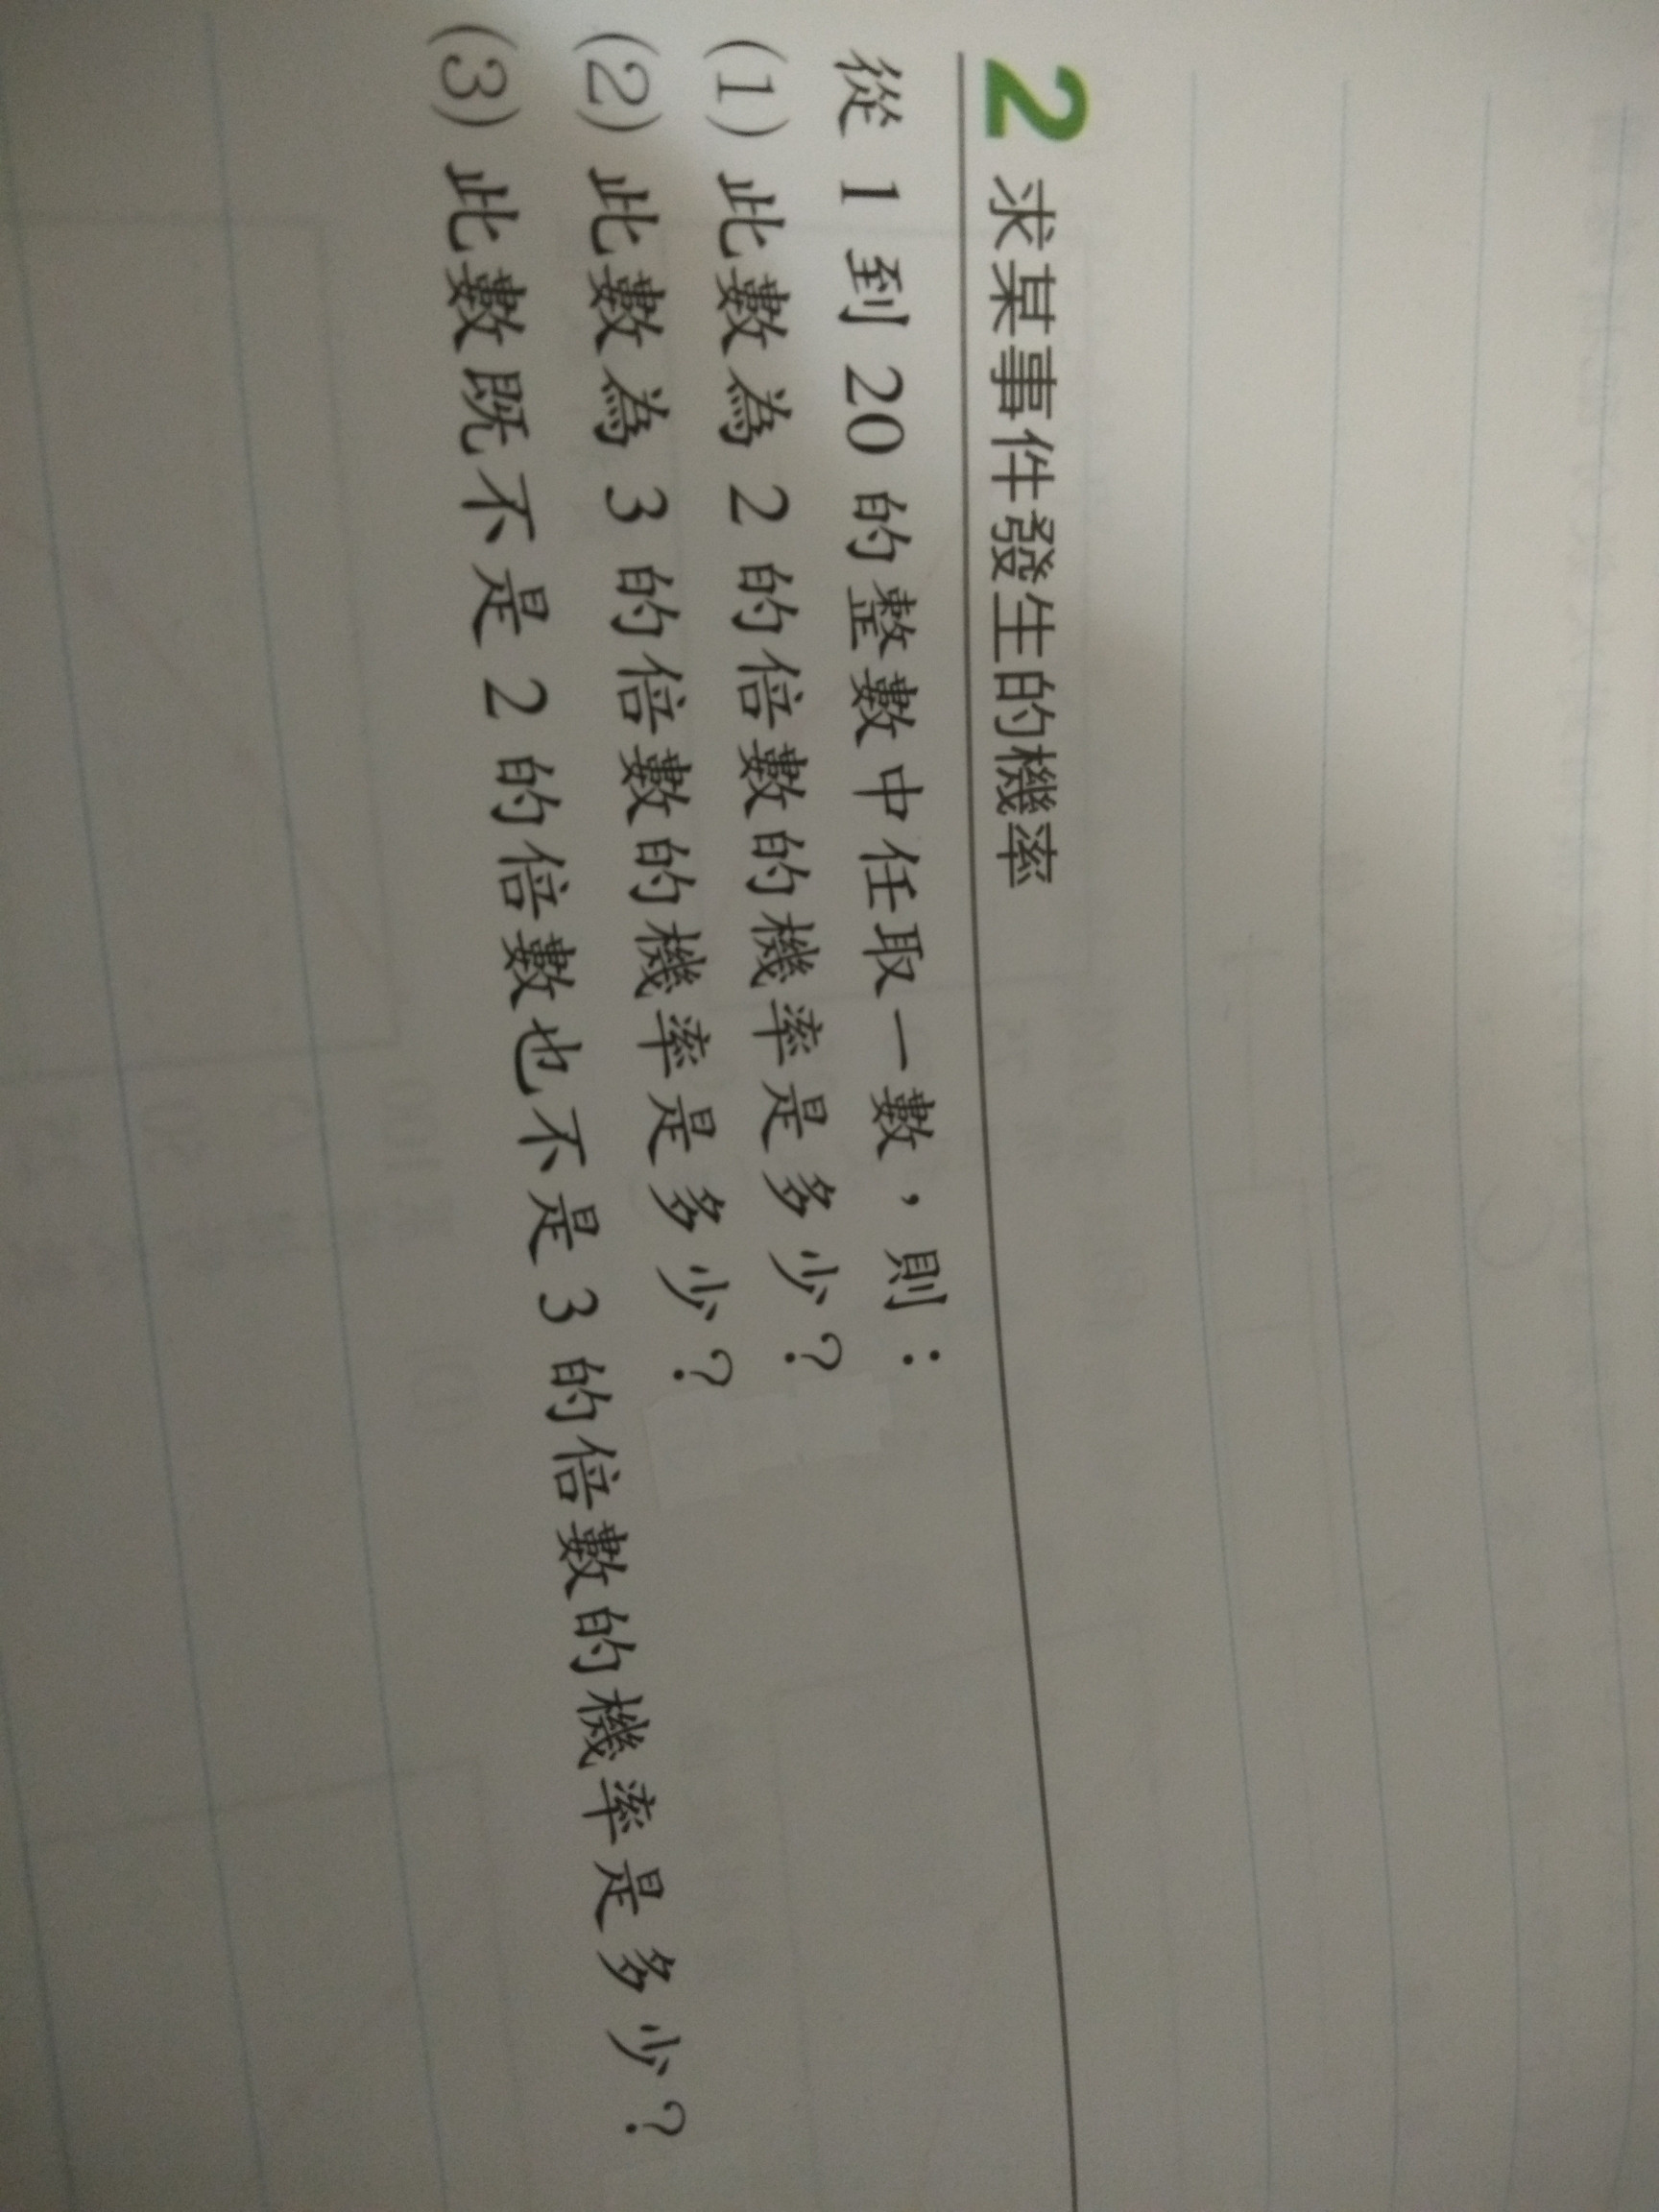 2 求某事件發生的機率
從 1 到 20 的整數中任取一數，則：
(1) 此數為 2 的倍數的機率是多少？
(2) 此數為 3 的倍數的機率是多少？
(3) 此數既不是 2 的倍數也不是 3 的倍數的機率是多少？